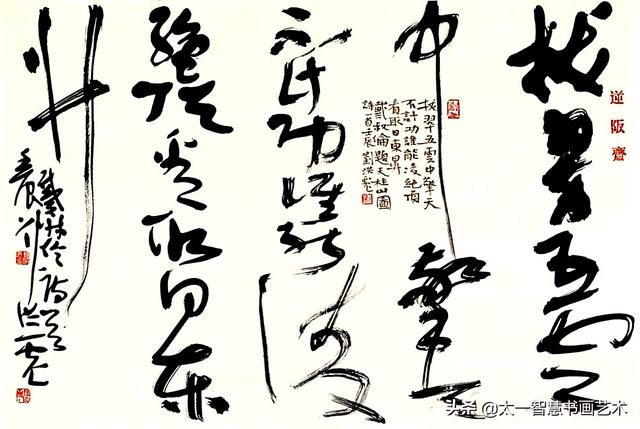 逆阪齋
拔翠五云
中擎天
不计功谁能凌
绝顶看取日东
升
拔翠五雲中擎天
不計功誰能凌絕頂
看取日東昇
戴叔倫題天柱山圖
壬辰劉洪彪
戴叔伦诗
头条 @太一智慧书画艺术